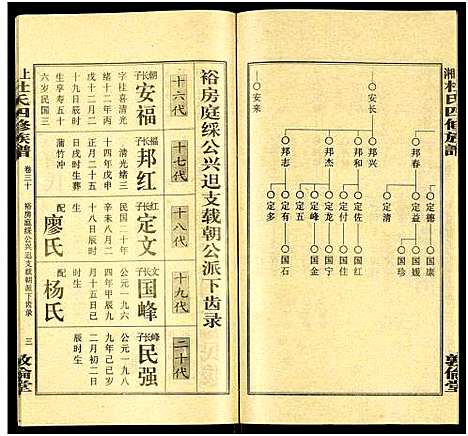 湘杜氏四修族谱
敦伦堂
安长
安来
邦春
邦兴
邦和
邦红
邦志
定德
定益
定清
定佐
定付
定龙
定峰
定五
定有
定多
国康
国媛
国珍
国红
国佳
国宁
国金
国石
裕房庭綵公兴迫支载朝公派下齿录
十六代
十七代
十八代
十九代
二十代
朝长子
安福
字桂喜清光
绪十二年丙
戌十二月二
十九日辰时
生享寿五十
六岁民国三
福长子
邦红
清光绪三
十四年戊申
正月二十五
日戌时生葬
蒲竹冲
红长子
定文
民国二十年
辛未八月二
十八日辰时
生
配
廖氏
文长子
国峰
公元一九六
四年甲辰九
月十五日已
时生
配
杨氏
峰长子
民强
公元一九八
九年己巳岁
二月初二日
辰时生
上杜氏四修族谱
卷三十
裕房庭綵公兴迫支载朝公派下齿录
三
敦伦堂